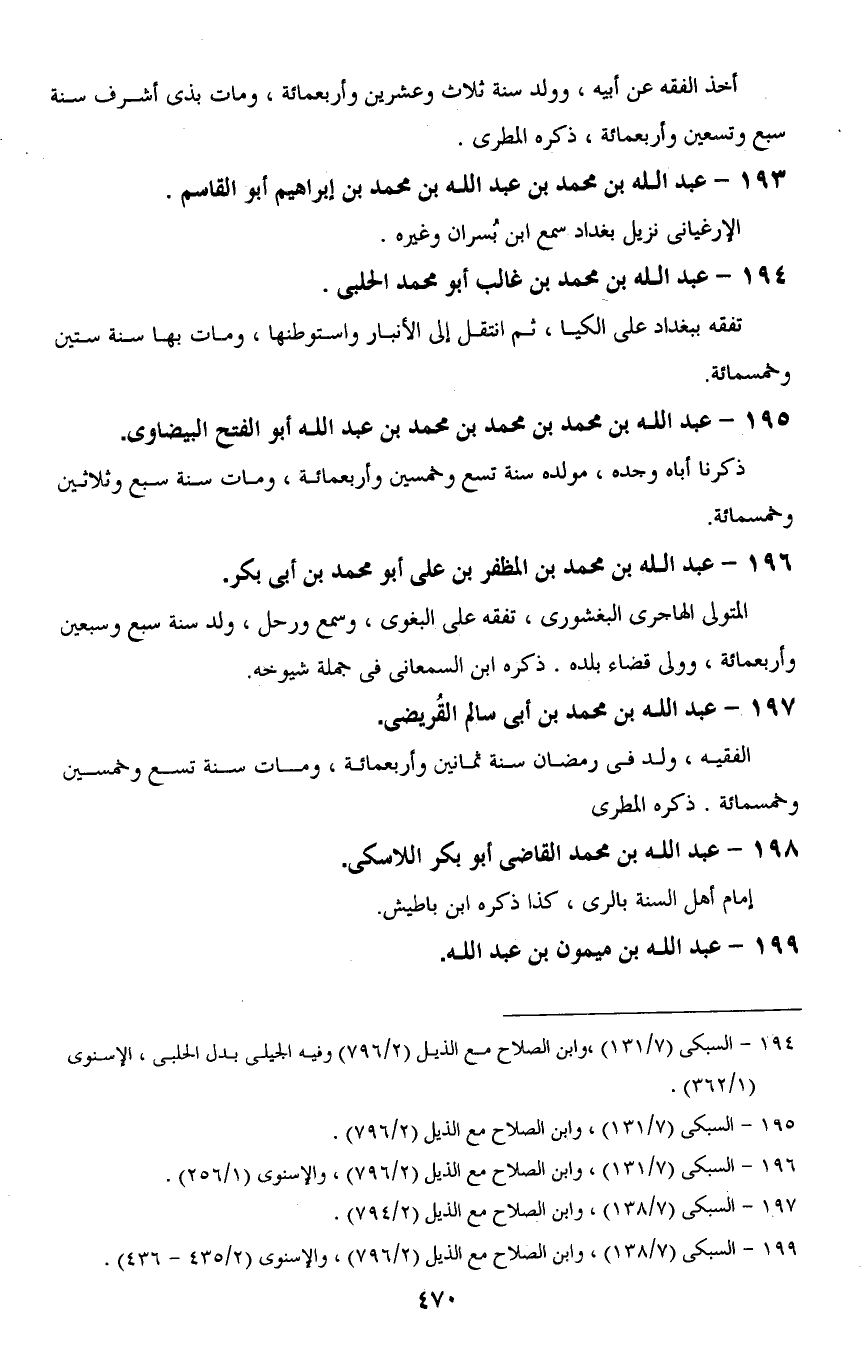 أخذ الفقه عن أبيه ، وولد سنة ثلاث وعشرين وأربعمائة ، ومات بذى أشرف سنة
سبع وتسعين وأربعمائة ، ذكره المطرى .
١٩٣ – عبد الله بن محمد بن عبد الله بن محمد بن إبراهيم أبو القاسم .
الإرغيانى نزيل بغداد سمع ابن بُسران وغيره .
١٩٤ – عبد الله بن محمد بن غالب أبو محمد الحلبى .
تفقه ببغداد على الكيا ، ثم انتقل إلى الأنبار واستوطنها ، ومات بها سنة ستين
وخمسمائة.
١٩٥ – عبد الله بن محمد بن محمد بن محمد بن عبد الله أبو الفتح البيضاوى.
ذكرنا أباه وجده ، مولده سنة تسع وخمسين وأربعمائة ، ومات سنة سبع وثلاثين
وخمسمائة.
١٩٦ – عبد الله بن محمد بن المظفر بن على أبو محمد بن أبى بكر.
المتولى الهاجرى البغشورى ، تفقه على البغوى ، وسمع ورحل ، ولد سنة سبع وسبعين
وأربعمائة ، وولى قضاء بلده . ذكره ابن السمعانى فى جملة شيوخه.
١٩٧ – عبد الله بن محمد بن أبى سالم القُريضى.
الفقيه ، ولد فى رمضان سنة ثمانين وأربعمائة ، ومات سنة تسع وخمسين
وخمسمائة . ذكره المطرى
١٩٨ – عبد الله بن محمد القاضى أبو بكر اللاسكى.
إمام أهل السنة بالرى ، كذا ذكره ابن باطيش.
١٩٩ – عبد الله بن ميمون بن عبد الله.
١٩٤ – السبكى (١٣١/٧) ،وابن الصلاح مع الذيل (٧٩٦/٢) وفيه الجيلى بدل الحلبى ، الإسنوى
(٣٦٢/١) .
١٩٥ – السبكى (١٣١/٧) ، وابن الصلاح مع الذيل (٧٩٦/٢) .
١٩٦ – السبكى (١٣١/٧) ، وابن الصلاح مع الذيل (٧٩٦/٢) ، والإسنوى (٢٥٦/١) .
١٩٧ – السبكى (١٣٨/٧) ، وابن الصلاح مع الذيل (٧٩٤/٢) .
١٩٩ – السبكى (١٣٨/٧) ، وابن الصلاح مع الذيل (٧٩٦/٢) ، والإسنوى (٤٣٥/٢ – ٤٣٦) .
٤٧٠